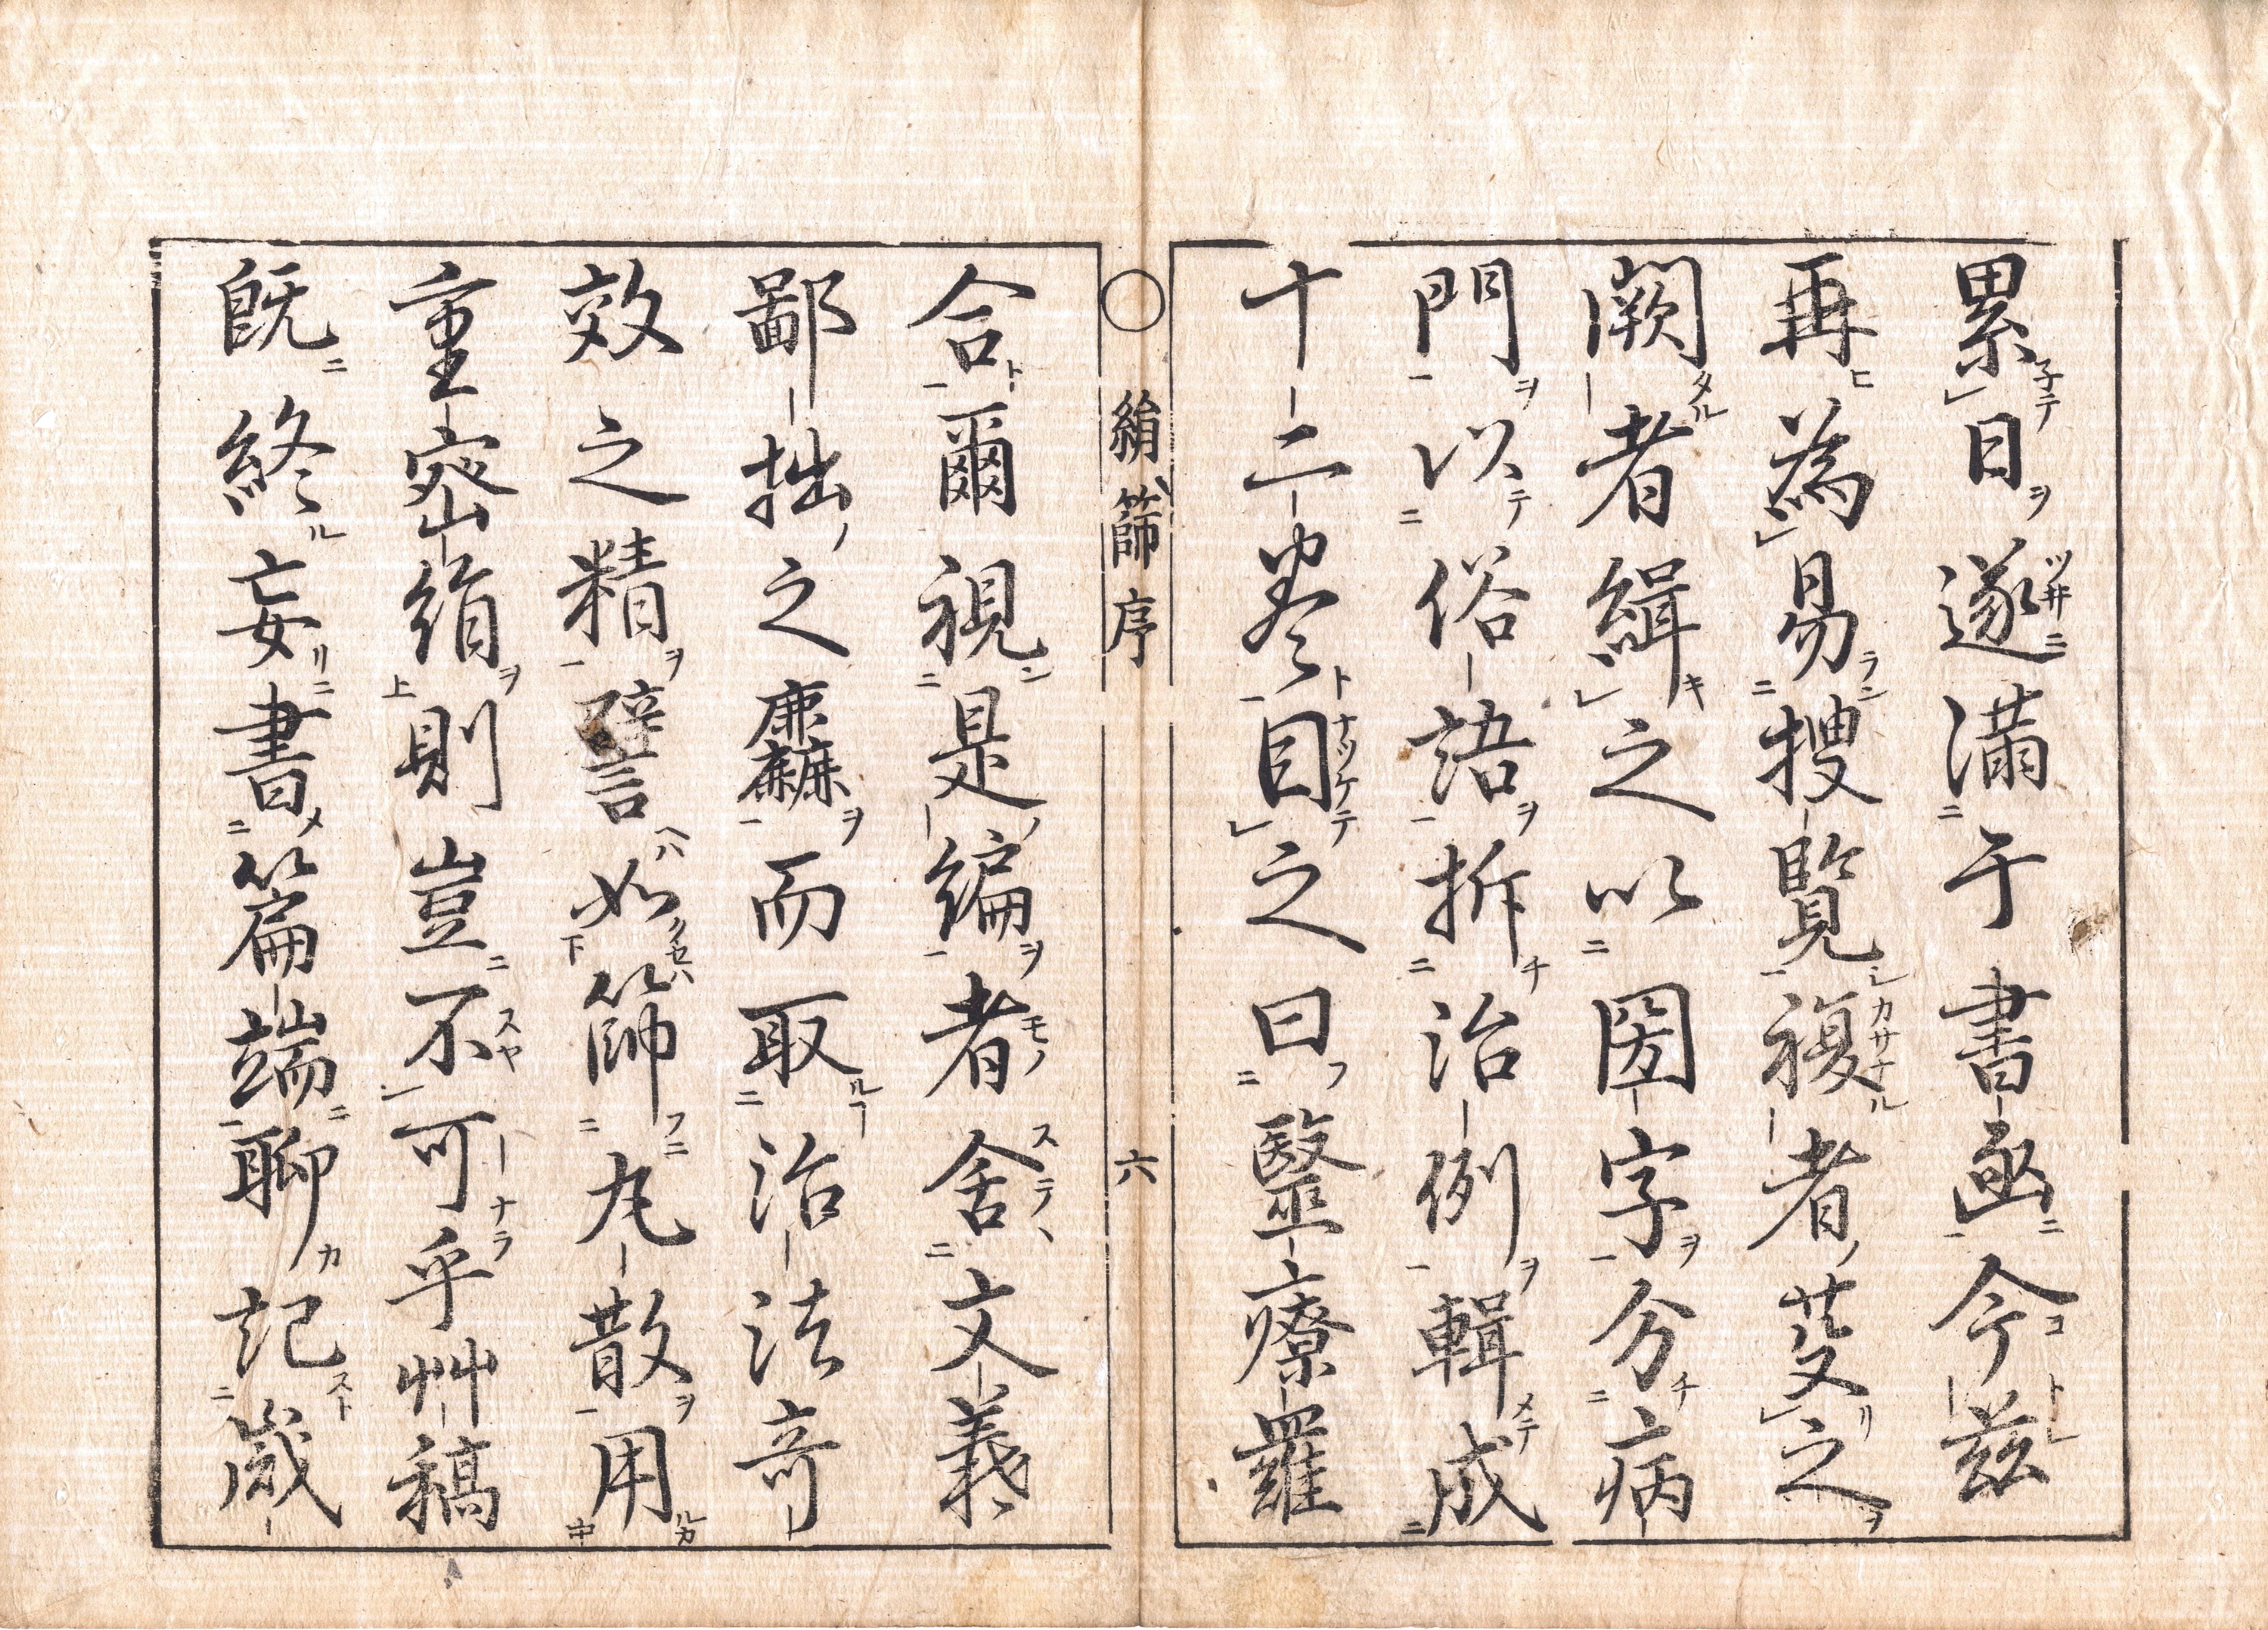 累日遂滿于書凾今玆
再為易搜覽複者芟之
闕者緝之以圀字分病
門以俗語拆治例輯成
十二巻目之曰毉療羅
○ 絹篩序 六
合爾視是編者舎文義
鄙拙之麤而取治法竒
效之精譬如篩丸散用
重宻絹則豈不可乎艸稿
既終妄書篇端聊記歳